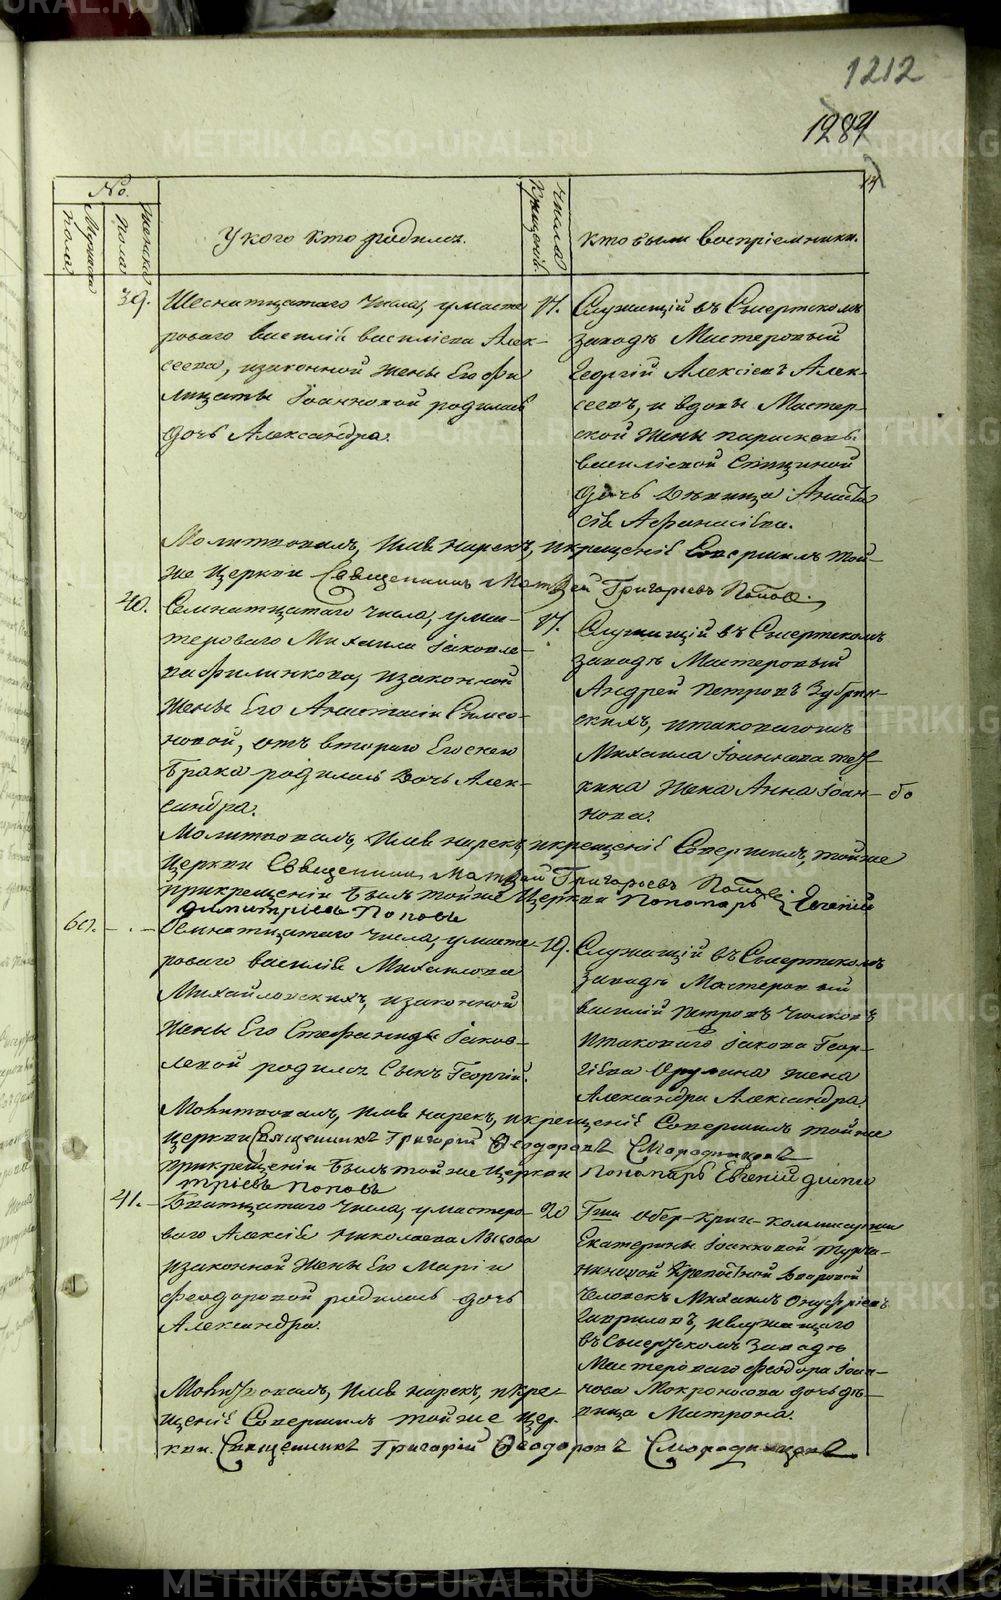 1212
1284
№.
Женска пола
Мужеска пола
У кого кто родился.
Числа Крещенiй.
Кто были воспрiемники.
39.
Шеснатцатаго числа, у масте
роваго Василiя Василiева Алек-
сеева, и законной жены Его Фи
лицаты Iоанновой родилась
дочь Александра.
17.
Служащiй въ Сысертскомъ
заводѣ Мастеровый
Георгiй Алексiевъ Алек-
сеевъ, и вдовы Мастер-
ской жены Парасковьи
Василiевой Спициной
дочь дѣвица Анаста
сiя Афанасiева.
Молитвовалъ, Имя нарекъ, и крещенiе Совершилъ той-
же Церкви Священникъ Матвей Григорьевъ Поповъ.
40.
Семнатцатаго числа, у мас-
тероваго Михаила Iаковле-
ва Филинкова, и законной
жены Его Анастасiи Симео-
новой, отъ втораго Его
брака родилась дочь Алек-
сандра.
17.
Служащiй въ Сысертскомъ
заводѣ Мастеровый
Андрей Петровъ Зубрин-
скихъ, и таковагожъ
Михаила Iоаннова
жена Анна Iоан-
нова.
Молитвовалъ, Имя нарекъ, и крещенiе Совершилъ, тойже
Церкви Священникъ Матвей Григорьевъ Поповъ
при крещенiи былъ тойже Церкви Пономарь Евгенiй
Димитрiевъ Поповъ
60.
- . -
Семнатцатаго числа, у масте
роваго Василiя Михаилова
Михайловскихъ, и законной
жены Его Стефаниды Iаков-
левой родился Сынъ Георгiй.
19.
Служащiй въ Сысертскомъ
заводѣ Мастеровый
Василiй Петровъ Чиликовъ
и таковаго Iакова Геор-
гiева жена
Александра Александра.
Молитвовалъ, Имя нарекъ, и крещенiе Совершилъ тойже
Церкви Священникъ Григорiй Феодоровъ Смородинцовъ
при крещенiи былъ тойже Церкви Пономарь Евгенiй Дими
трiевъ Поповъ
41.
Дватцатаго числа, у мастеро-
ваго Алексiя Николаева Лысова
и законной жены Его Марiи
Феодоровой родилась дочь
Александра.
20
Гжи Обер-криг-коммисарши
Екатерины Iоанновой Турча-
ниновой Крепостной Дворовой
человекъ Михаилъ Онуфрiевъ
Гавриловъ, и служащаго
въ Сысертскомъ Заводѣ
Мастероваго Феодора Iоан-
нова Мокроносова дочь дѣ-
вица Матрона.
Молитвовалъ, Имя нарекъ, и кре-
щенiе Совершилъ тойже Цер-
кви. Священникъ Григорiй Феодоровъ Смородинцовъ
METRIKI.GASO-URAL.RU